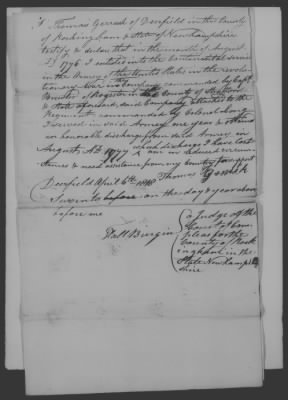 I Thomas Gerard of Deerfield in the County
of Rockingham & State of Newhampshire
testify & declare that in the month of August
AD 1776 I entered into the Continental service
in the Army of the United States in the revolu-
tionary war in the Company commanded by Capt
of in the County of
& State aforesaid, said Company attached to the
Regiment commanded by Colonel
I served in said Army one year & obtained
an honorable discharge from said Army in
August AD 1777 which discharge I have lost
& am in reduced circum-
stances & need assistance from my Country for support
Deerfield April 6th 1818 Thomas
Sworn to before on the day & year above
before me
a Judge of the
Court of Com
pleas for the
County of Rock
ingham in the
State Newhamp
shire